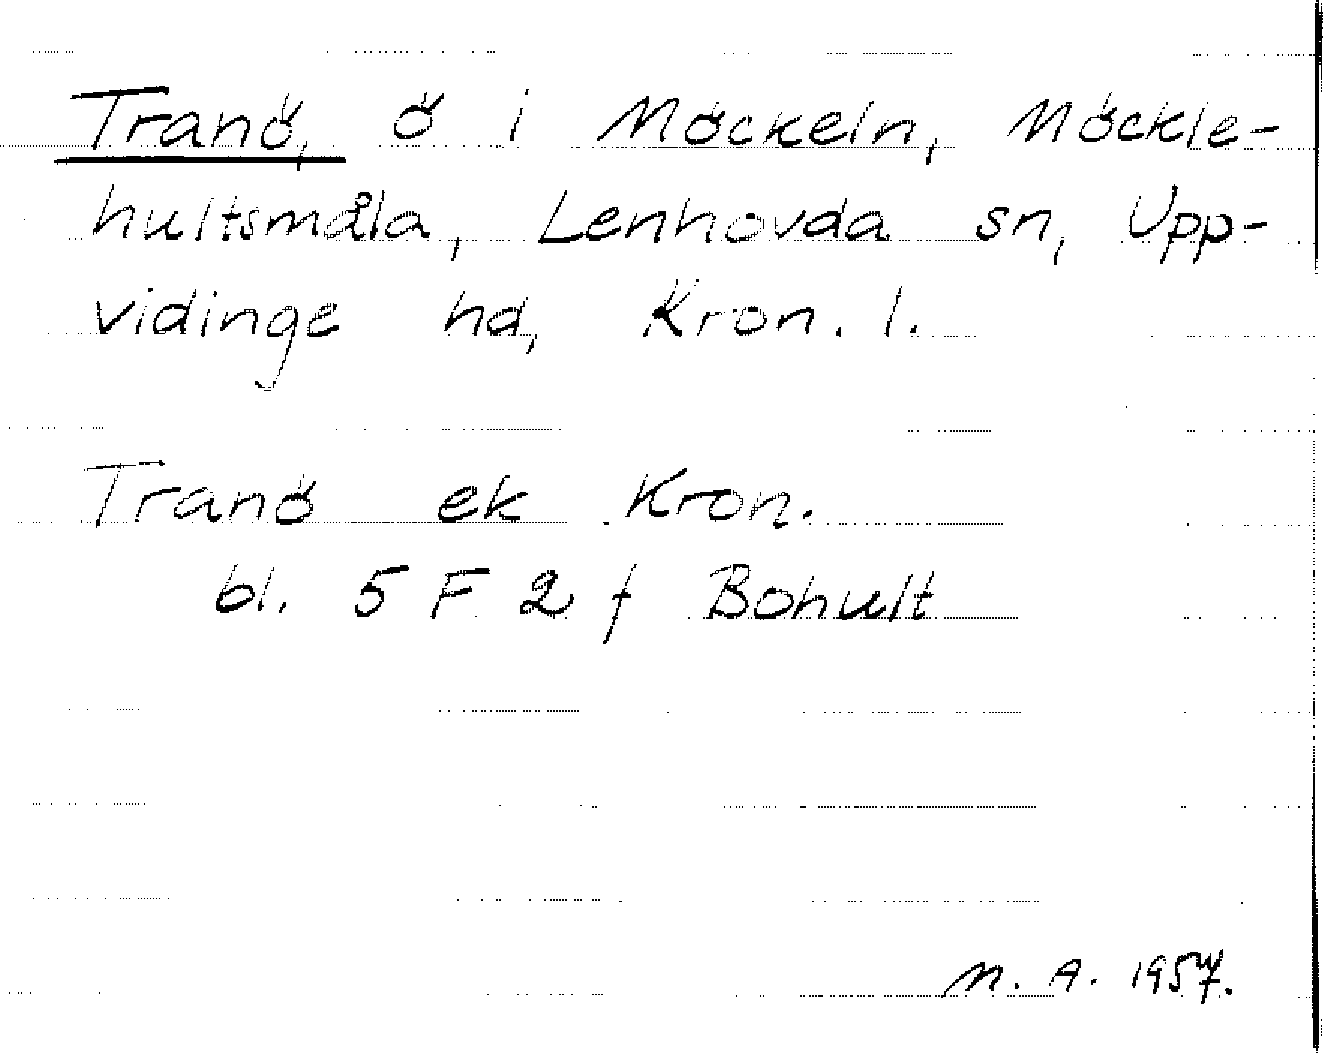 Tranö, ö i Möckeln, Möckle-
hultsmåla, Lenhovda sn, Upp-
vidinge hd, Kron. l.
Tranö ek Kron.
bl. 5 F 2 f Bohult
M. A. 1957.